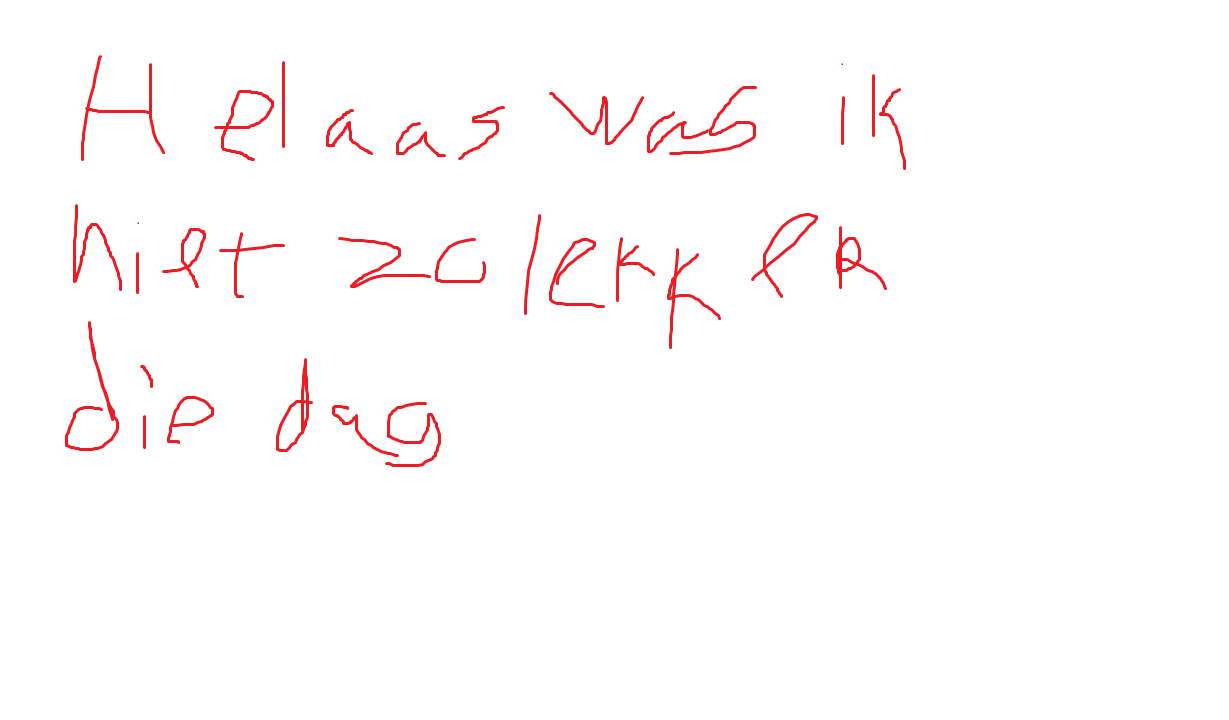 Helaas was ik
niet zo lekker
die dag